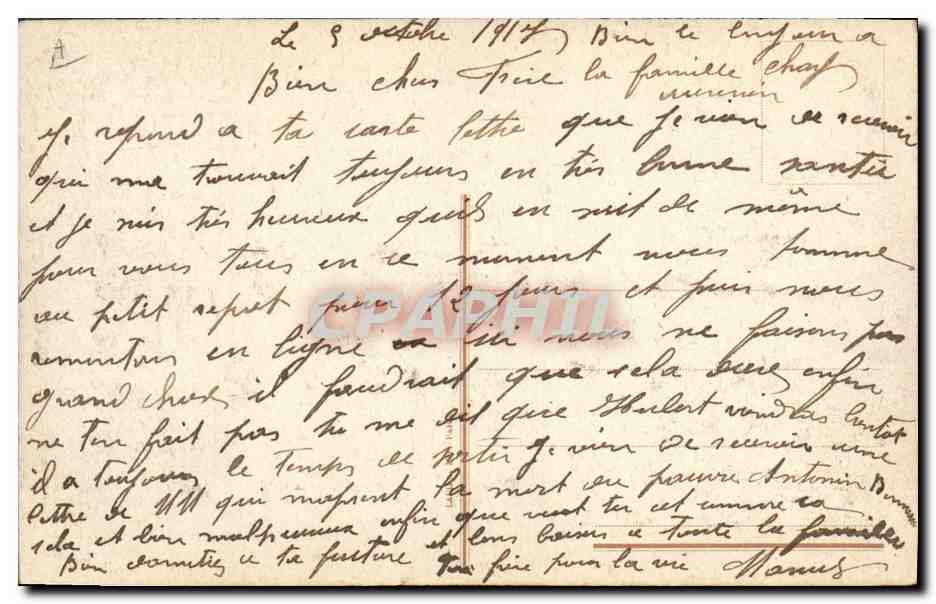 Le 5 octobre 1917 Bien le bonjour a
Bien cher Frère la famille
Je repond a ta carte lettre que je vien de recevoir
qui me trouvait toujours en très bonne santée
et je suis très heureux quils en soit de même
pour vous tous en ce moment nous somme
au petit repot pour 12 jours et puis nous
remontons en ligne ici nous ne faisons pas
grand choses il faudrait que sela dure enfin
ne ten fait pas tu me dit que Hubert viendras bientot
il a toujours le temps de sortir je vien de recevoir une
lettre de qui la mort du pauvre Antonin
sela et bien malheureux enfin que veut tu cet comme sa
et bons baisers a toute la familles
Bien damitiés a ta future Ton frère pour la vie
CPAPHIL